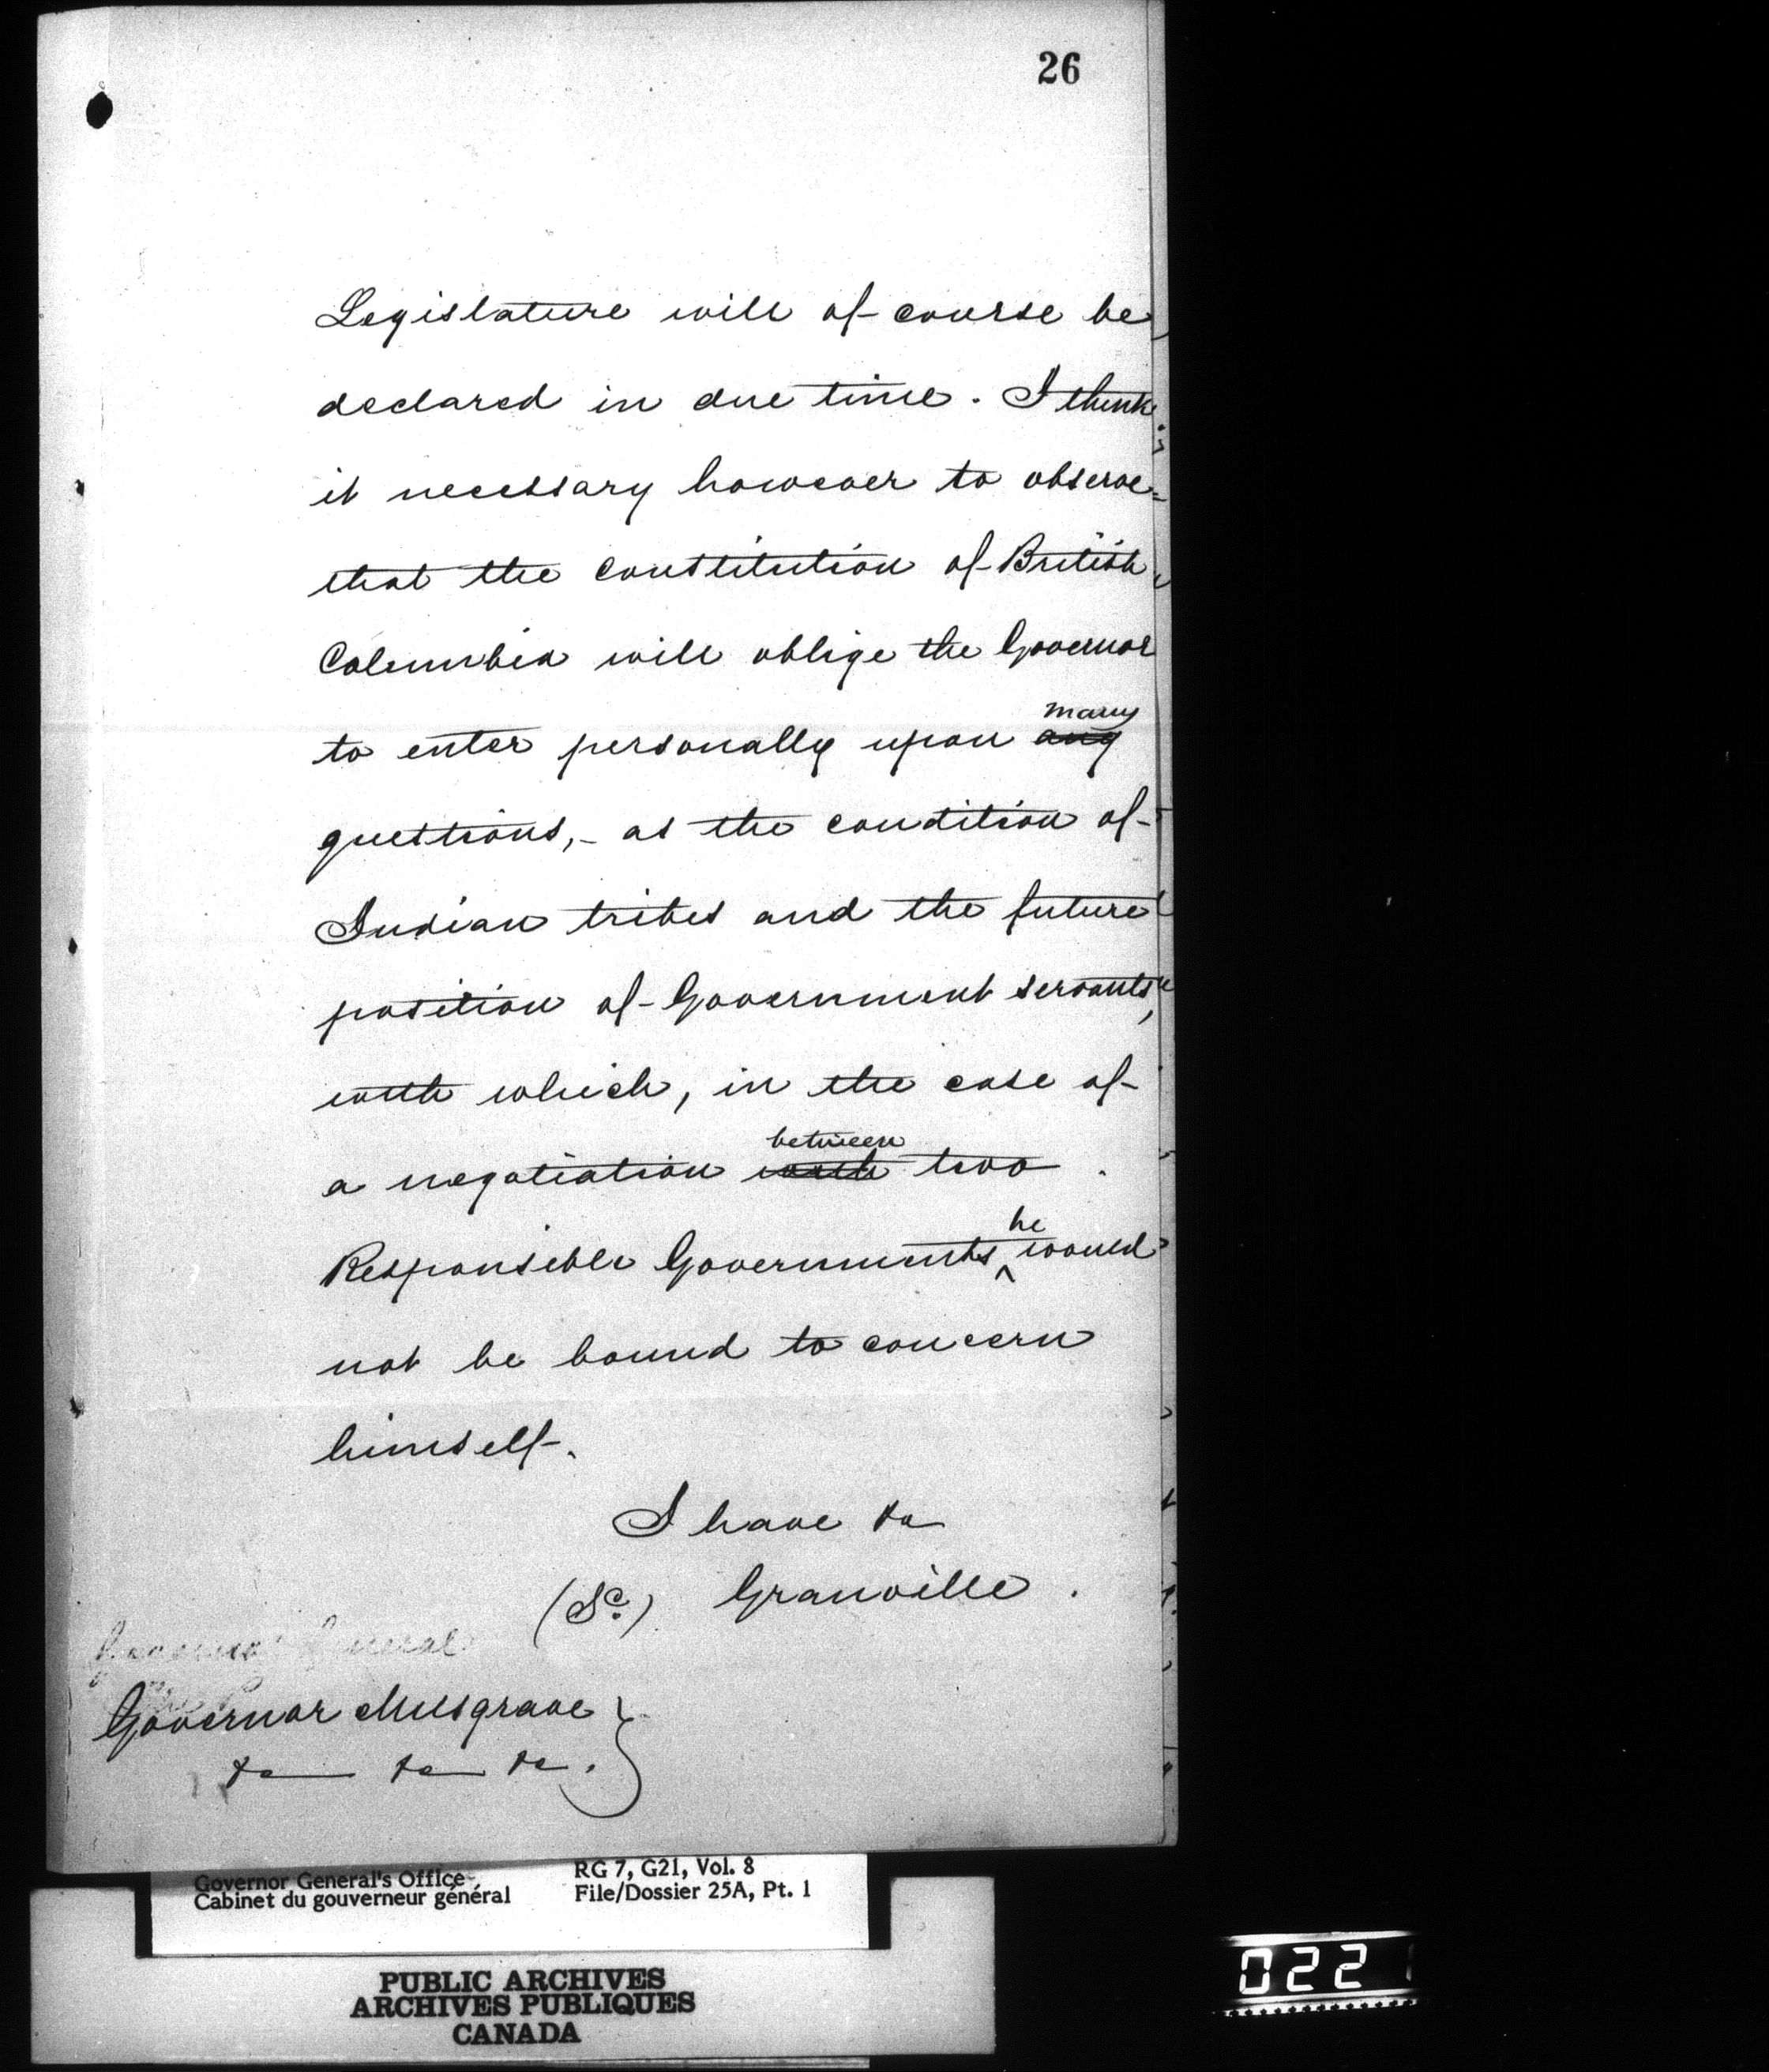 26
Legislature will of course be
declared in due time. I think
it necessary however to observe
that the constitution of British
Columbia will oblige the Governor
many
to enter personally upon any
questions,- as the condition of
Indian tribes and the future
position of Government servants,
with which, in the case of
between
a negotiation with two
he
Responsible Governments ^ would
not be bound to concern
himself.
I have &c
(Sd.) Granville.
Governor General
Governor Musgrave
&c &c &c.
Governor General's Office RG 7, G21, Vol. 8
Cabinet du gouverneur général File/Dossier 25A, Pt. 1
PUBLIC ARCHIVES
ARCHIVES PUBLIQUES
CANADA
022